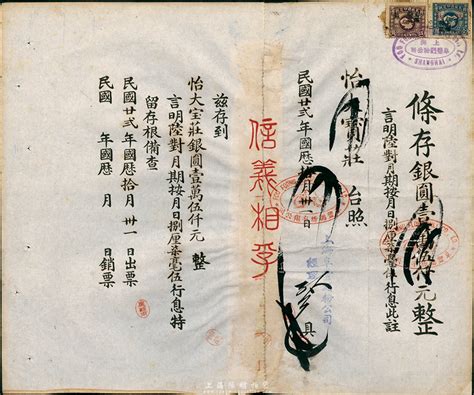 SHANGHAI
條存銀圓壹萬伍仟元整
言明陸對月期按月日捌厘柒毫伍行息此註
怡 寳莊 台照
民國廿弍年國歷 卅一日 具
信義相孚
茲存到
怡大宝莊銀圓壹萬伍仟元 整
言明陸對月期按月日捌厘柒毫伍行息特
留存根備查
民國廿弍年國歷拾月卅一日出票
民國 年國歷 月 日銷票